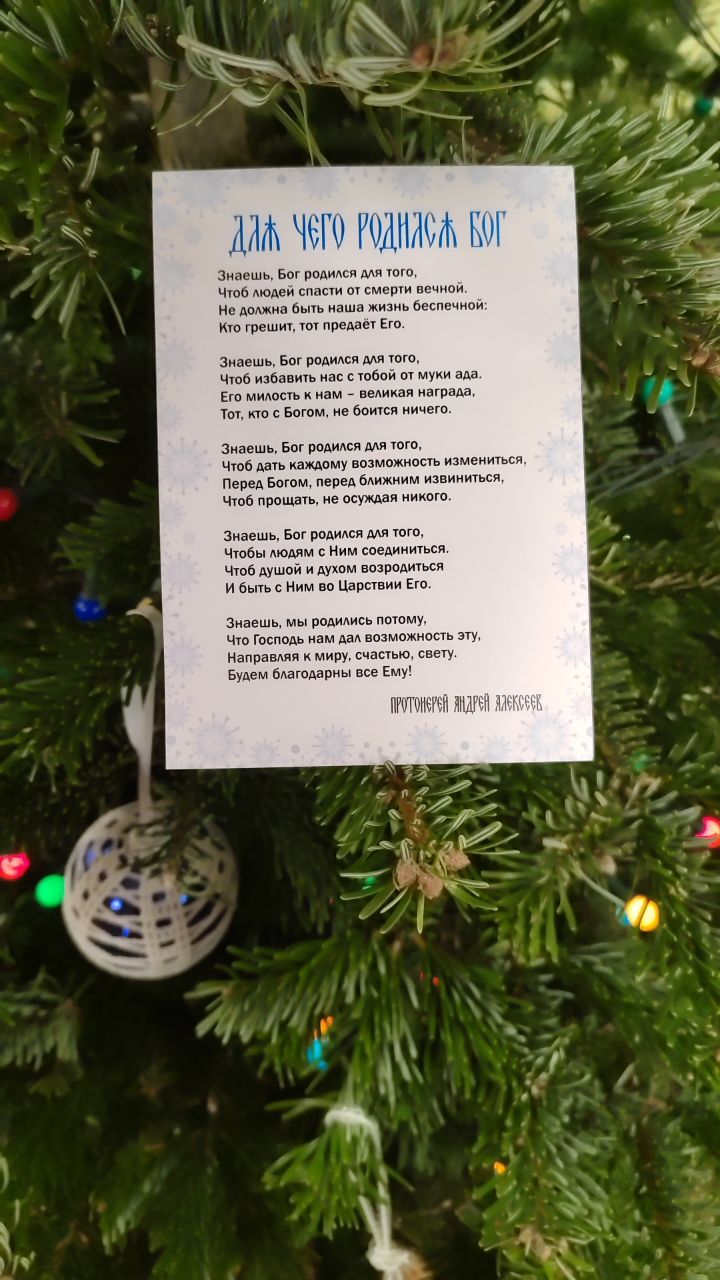 ДЛѦ ЧЕГО РОДИЛСѦ БОГ
Знаешь, Бог родился для того,
Чтоб людей спасти от смерти вечной.
Не должна быть наша жизнь беспечной:
Кто грешит, тот предаёт Его.
Знаешь, Бог родился для того,
Чтоб избавить нас с тобой от муки ада.
Его милость к нам – великая награда,
Тот, кто с Богом, не боится ничего.
Знаешь, Бог родился для того,
Чтоб дать каждому возможность измениться,
Перед Богом, перед ближним извиниться,
Чтоб прощать, не осуждая никого.
Знаешь, Бог родился для того,
Чтобы людям с Ним соединиться.
Чтоб душой и духом возродиться
И быть с Ним во Царствии Его.
Знаешь, мы родились потому,
Что Господь нам дал возможность эту,
Направляя к миру, счастью, свету.
Будем благодарны все Ему!
ПРОТОИЕРЕЙ АНДРЕЙ АЛЕКСЕЕВ